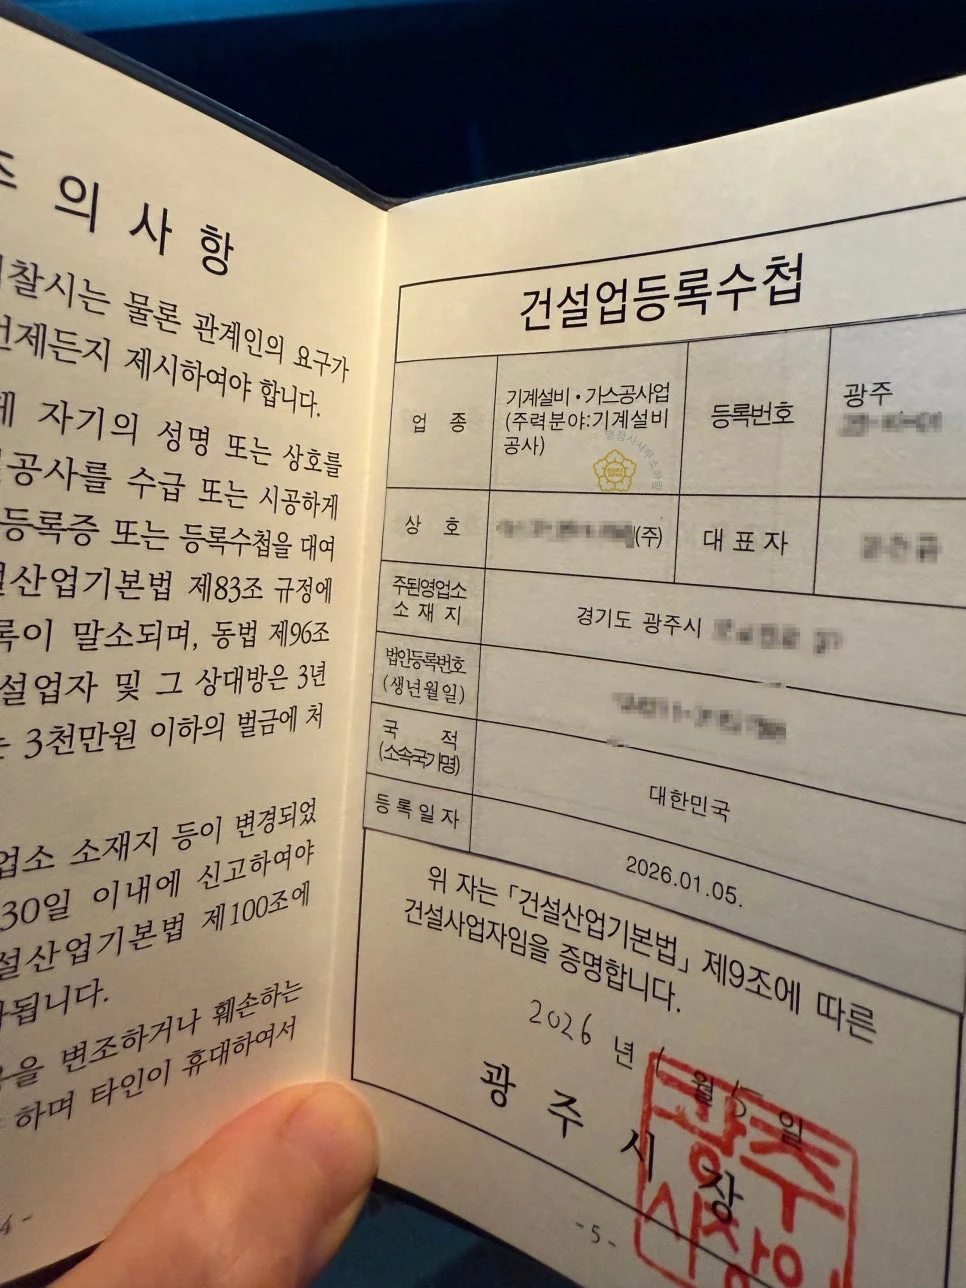 의 사 항
찰시는 물론 관계인의 요구가
언제든지 제시하여야 합니다.
자기의 성명 또는 상호를
공사를 수급 또는 시공하게
등록증 또는 등록수첩을 대여
설산업기본법 제83조 규정에
록이 말소되며, 동법 제96조
설업자 및 그 상대방은 3년
는 3천만원 이하의 벌금에 처
업소 소재지 등이 변경되었
30일 이내에 신고하여야
설산업기본법 제100조에
됩니다.
을 변조하거나 훼손하는
하며 타인이 휴대하여서
4 -
건설업등록수첩
업 종
기계설비・가스공사업
(주력분야:기계설비
공사)
등록번호
광주
상 호
(주)
대 표 자
주된영업소
소 재 지
경기도 광주시
법인등록번호
(생년월일)
국 적
(소속국가명)
대한민국
등 록 일 자
2026.01.05.
위 자는 「건설산업기본법」 제9조에 따른
건설사업자임을 증명합니다.
2026 년 1 월 5 일
광 주 시 장
- 5 -